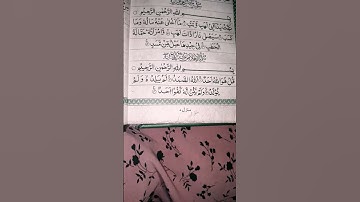 بِسْمِ اللهِ الرَّحْمٰنِ الرَّحِيْمِ
تَبَّتْ يَدَآ اَبِيْ لَهَبٍ وَّتَبَّ مَآ اَغْنٰى عَنْهُ مَالُهٗ وَمَا
كَسَبَ سَيَصْلٰى نَارًا ذَاتَ لَهَبٍ وَّامْرَاَتُهٗ حَمَّالَةَ
الْحَطَبِ فِيْ جِيْدِهَا حَبْلٌ مِّنْ مَّسَدٍ
بِسْمِ اللهِ الرَّحْمٰنِ الرَّحِيْمِ
قُلْ هُوَ اللهُ اَحَدٌ اَللهُ الصَّمَدُ لَمْ يَلِدْ وَلَمْ
يُوْلَدْ وَلَمْ يَكُنْ لَّهٗ كُفُوًا اَحَدٌ
منزل